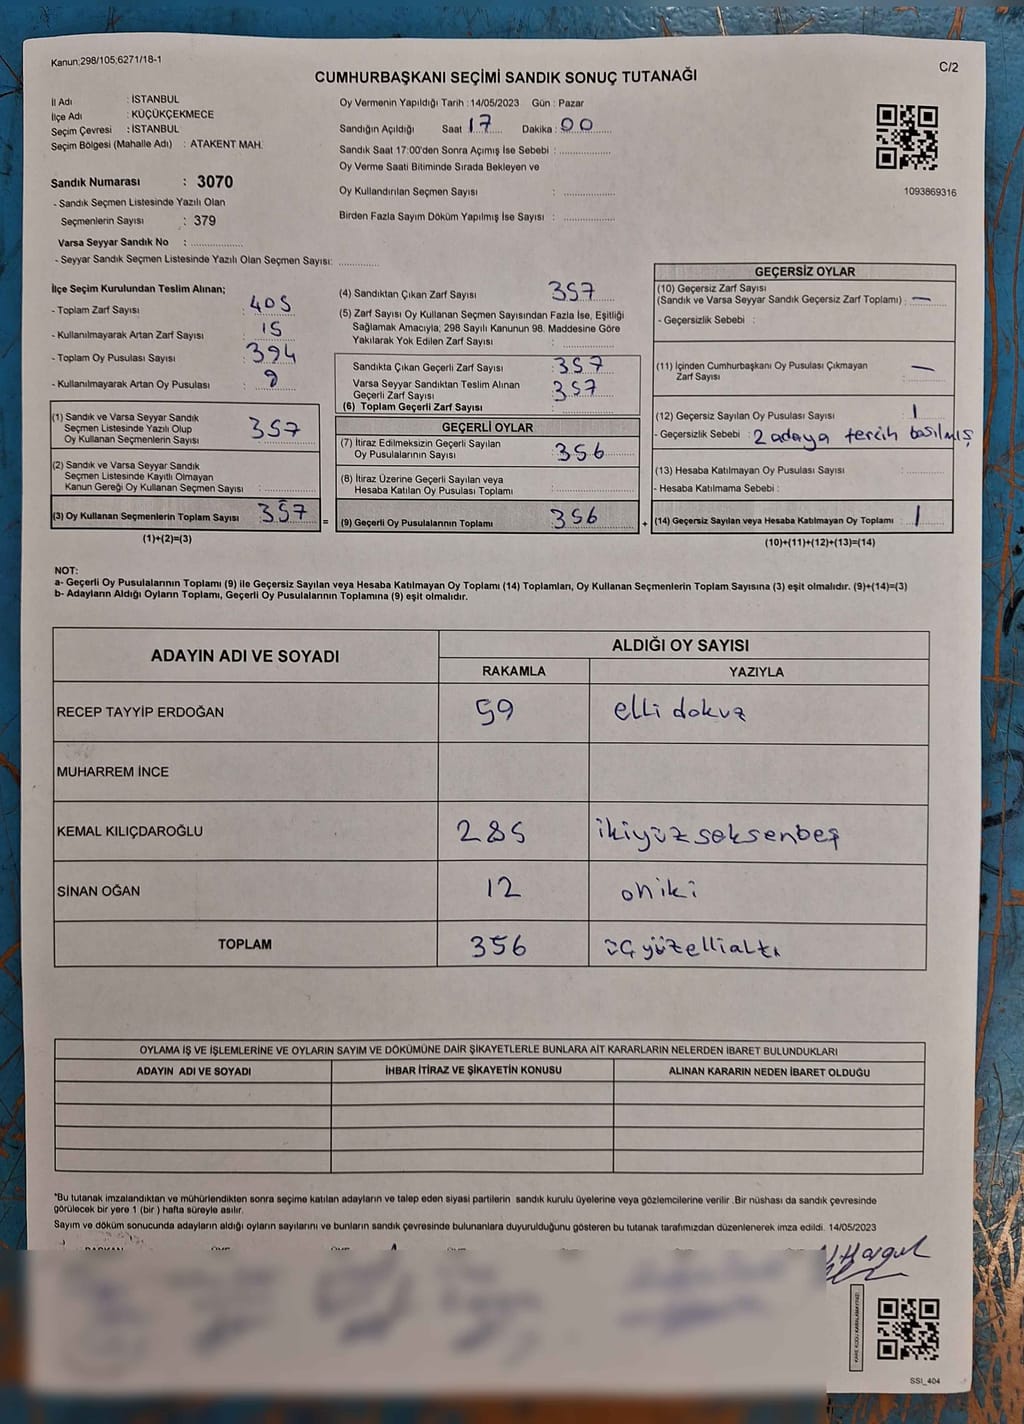 Kanun;298/105,6271/18-1
C/2
CUMHURBAŞKANI SEÇİMİ SANDIK SONUÇ TUTANAĞI
İl Adı : İSTANBUL
İlçe Adı : KÜÇÜKÇEKMECE
Seçim Çevresi : İSTANBUL
Seçim Bölgesi (Mahalle Adı) : ATAKENT MAH.
Sandık Numarası : 3070
- Sandık Seçmen Listesinde Yazılı Olan
Seçmenlerin Sayısı : 379
Varsa Seyyar Sandık No : ...............
- Seyyar Sandık Seçmen Listesinde Yazılı Olan Seçmen Sayısı: ............
Oy Vermenin Yapıldığı Tarih : 14/05/2023 Gün : Pazar
Sandığın Açıldığı Saat 17 Dakika : 00
Sandık Saat 17:00'den Sonra Açımış İse Sebebi : ...............
Oy Verme Saati Bitiminde Sırada Bekleyen ve
Oy Kullandırılan Seçmen Sayısı : ...............
Birden Fazla Sayım Döküm Yapılmış İse Sayısı : ...............
1093869316
İlçe Seçim Kurulundan Teslim Alınan;
- Toplam Zarf Sayısı : 405
- Kullanılmayarak Artan Zarf Sayısı : 15
- Toplam Oy Pusulası Sayısı : 394
- Kullanılmayarak Artan Oy Pusulası :
(1) Sandık ve Varsa Seyyar Sandık
Seçmen Listesinde Yazılı Olup
Oy Kullanan Seçmenlerin Sayısı : 357
(2) Sandık ve Varsa Seyyar Sandık
Seçmen Listesinde Kayıtlı Olmayan
Kanun Gereği Oy Kullanan Seçmen Sayısı : ...............
(3) Oy Kullanan Seçmenlerin Toplam Sayısı 357 =
(1)+(2)=(3)
(4) Sandıktan Çıkan Zarf Sayısı : 357
(5) Zarf Sayısı Oy Kullanan Seçmen Sayısından Fazla İse, Eşitliği
Sağlamak Amacıyla; 298 Sayılı Kanunun 98. Maddesine Göre
Yakılarak Yok Edilen Zarf Sayısı : ...............
Sandıkta Çıkan Geçerli Zarf Sayısı : 357
Varsa Seyyar Sandıktan Teslim Alınan
Geçerli Zarf Sayısı : 357
(6) Toplam Geçerli Zarf Sayısı : ...............
GEÇERLİ OYLAR
(7) İtiraz Edilmeksizin Geçerli Sayılan
Oy Pusulalarının Sayısı : 356
(8) İtiraz Üzerine Geçerli Sayılan veya
Hesaba Katılan Oy Pusulası Toplamı : ...............
(9) Geçerli Oy Pusulalarının Toplamı 356 +
GEÇERSİZ OYLAR
(10) Geçersiz Zarf Sayısı
(Sandık ve Varsa Seyyar Sandık Geçersiz Zarf Toplamı) : —
- Geçersizlik Sebebi :
(11) İçinden Cumhurbaşkanı Oy Pusulası Çıkmayan
Zarf Sayısı : —
(12) Geçersiz Sayılan Oy Pusulası Sayısı : 1
- Geçersizlik Sebebi : 2 adaya tercih basılmış
(13) Hesaba Katılmayan Oy Pusulası Sayısı : ............
- Hesaba Katılmama Sebebi :
(14) Geçersiz Sayılan veya Hesaba Katılmayan Oy Toplamı : 1
(10)+(11)+(12)+(13)=(14)
NOT:
a- Geçerli Oy Pusulalarının Toplamı (9) ile Geçersiz Sayılan veya Hesaba Katılmayan Oy Toplamı (14) Toplamları, Oy Kullanan Seçmenlerin Toplam Sayısına (3) eşit olmalıdır. (9)+(14)=(3)
b- Adayların Aldığı Oyların Toplamı, Geçerli Oy Pusulalarının Toplamına (9) eşit olmalıdır.
ADAYIN ADI VE SOYADI ALDIĞI OY SAYISI
RAKAMLA YAZIYLA
RECEP TAYYİP ERDOĞAN 59 elli dokuz
MUHARREM İNCE
KEMAL KILIÇDAROĞLU 285 ikiyüz seksenbeş
SİNAN OĞAN 12 oniki
TOPLAM 356 üç yüz ellialtı
OYLAMA İŞ VE İŞLEMLERİNE VE OYLARIN SAYIM VE DÖKÜMÜNE DAİR ŞİKAYETLERLE BUNLARA AİT KARARLARIN NELERDEN İBARET BULUNDUKLARI
ADAYIN ADI VE SOYADI İHBAR İTİRAZ VE ŞİKAYETİN KONUSU ALINAN KARARIN NEDEN İBARET OLDUĞU
*Bu tutanak imzalandıktan ve mühürlendikten sonra seçime katılan adayların ve talep eden siyasi partilerin sandık kurulu üyelerine veya gözlemcilerine verilir .Bir nüshası da sandık çevresinde
görülecek bir yere 1 (bir ) hafta süreyle asılır.
Sayım ve döküm sonucunda adayların aldığı oyların sayılarını ve bunların sandık çevresinde bulunanlara duyurulduğunu gösteren bu tutanak tarafımızdan düzenlenerek imza edildi. 14/05/2023
SSI_404